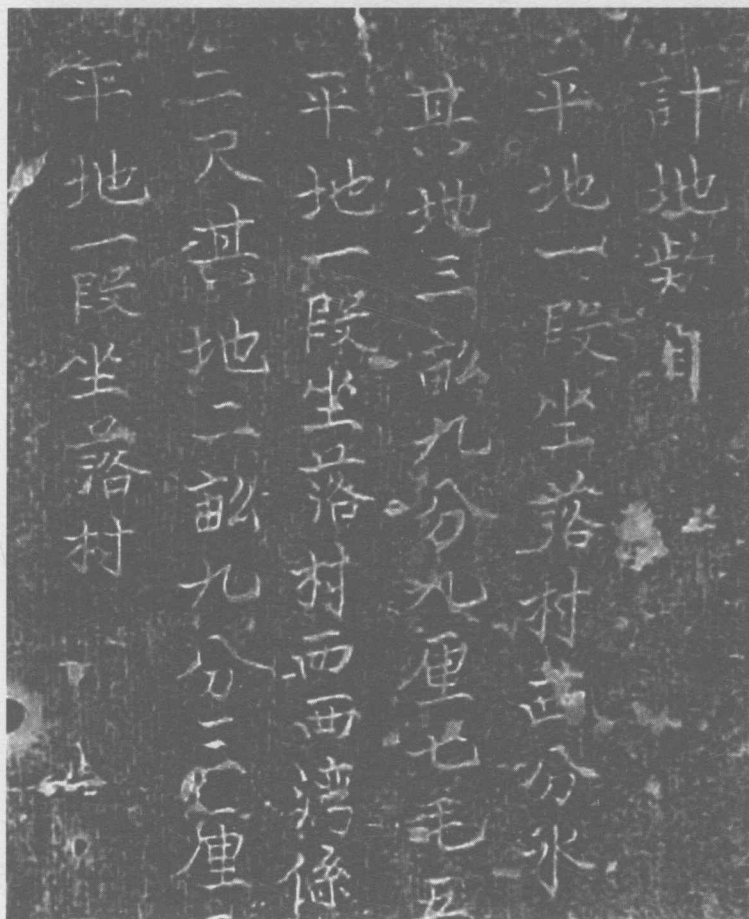 計地契自
平地一段坐落村西分水
共地三畝九分九厘七毛五
平地一段坐落村西西湾係
二尺共地二畝九分三厘
平地一段坐落村